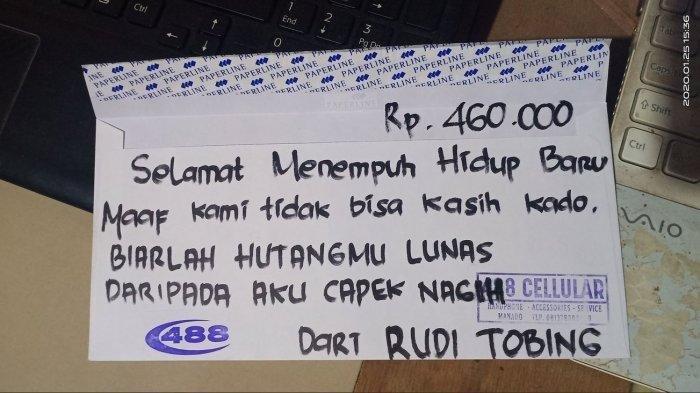 PAPERLINE PAPERLINE PAPERLINE PAPERLINE PAPERLINE
Rp. 460.000
Selamat Menempuh Hidup Baru
Maaf kami tidak bisa kasih kado.
BIARLAH HUTANGMU LUNAS
DARIPADA AKU CAPEK NAGIH
488 CELLULAR
HANDPHONE - ACCESSORIES - SERVICE
MANADO TLP.
488
Dari RUDI TOBING
2020.01.25 15:36
Ctrl
End
1
2
3
0
Pg Dn
Caps
Shift
Ctrl
VAIO